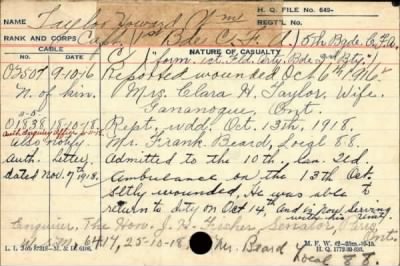 NAME Taylor, Howard
H. Q. FILE No. 649-
RANK AND CORPS Capt. 1st Bde C.F.A. 5th Bgde. C.F.A.
REGT'L No.
CABLE
NATURE OF CASUALTY
No. DATE
(form. 1st. Fld. Arty. Bde 2nd Bty.)
03507 9-10-16 Reported wounded Oct 6th 1916
N. of kin. Mrs. Clara H. Taylor, Wife.
Gananoque, Ont.
01838 18-10-18. Rept. wdd. Oct. 13th. 1918.
Also notify Mr. Frank Beard, Local 88.
Auth. Letter Admitted to the 10th. Can. Fld.
dated Nov. 7th 1918. Ambulance on the 13th Oct.
Sltly wounded. He was able to
return to duty on Oct 14th and is now serving
with his unit.
Enquirer, The Hon. J. H. Fisher, Senator, Paris,
Ont.
25-10-18. Mr. Beard Local 88.
M. F. W.
H. Q.